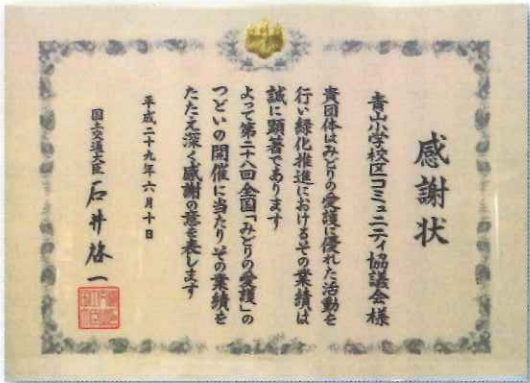 感謝状
青山小学校区コミュニティ協議会様
貴団体はみどりの愛護に優れた活動を
行い緑化推進におけるその業績は
誠に顕著であります
よって第二十八回全国「みどりの愛護」の
つどいの開催に当たりその業績を
たたえ深く感謝の意を表します
平成二十九年六月十日
国土交通大臣 石井啓一